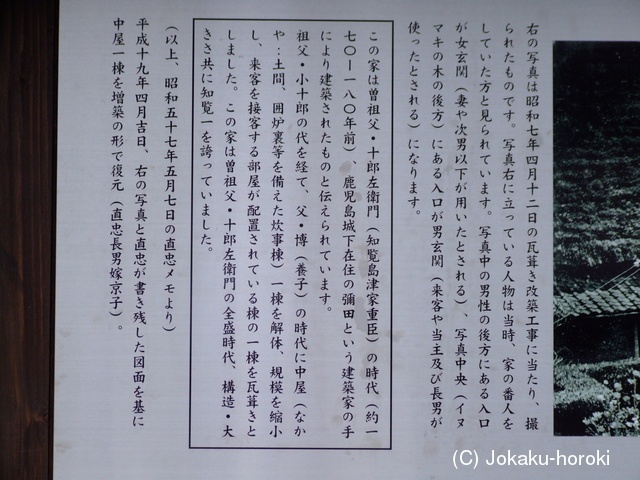 右の写真は昭和七年四月十二日の瓦葺き改築工事に当たり、撮
られたものです。写真右に立っている人物は当時、家の番人を
していた方と見られています。写真中の男性の後方にある入口
が女玄関（妻や次男以下が用いたとされる）、写真中央（イヌ
マキの木の後方）にある入口が男玄関（来客や当主及び長男が
使ったとされる）になります。
この家は曽祖父・十郎左衛門（知覧島津家重臣）の時代（約一
七〇ー一八〇年前）、鹿児島城下在住の彌田という建築家の手
により建築されたものと伝えられています。
祖父・小十郎の代を経て、父・博（養子）の時代に中屋（なか
や：土間、囲炉裏等を備えた炊事棟）一棟を解体、規模を縮小
し、来客を接客する部屋が配置されている棟の一棟を瓦葺きと
しました。この家は曽祖父・十郎左衛門の全盛時代、構造・大
きさ共に知覧一を誇っていました。
（以上、昭和五十七年五月七日の直忠メモより）
平成十九年四月吉日、右の写真と直忠が書き残した図面を基に
中屋一棟を増築の形で復元（直忠長男嫁京子）。
(C) Jokaku-horoki